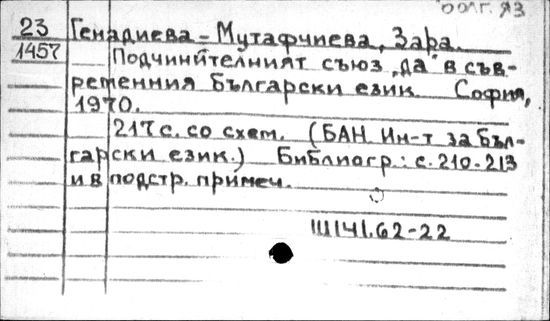 болг. яз
23 Генадиева-Мутафчиева, Зара.
1457 Подчинителният съюз „да" в съв-
ременния български език. София,
1970.
217 с. со схем. (БАН. Ин-т за бъл-
гарски език.) Библиогр.: с. 210-213
и в подстр. примеч.
Ш141.62-22